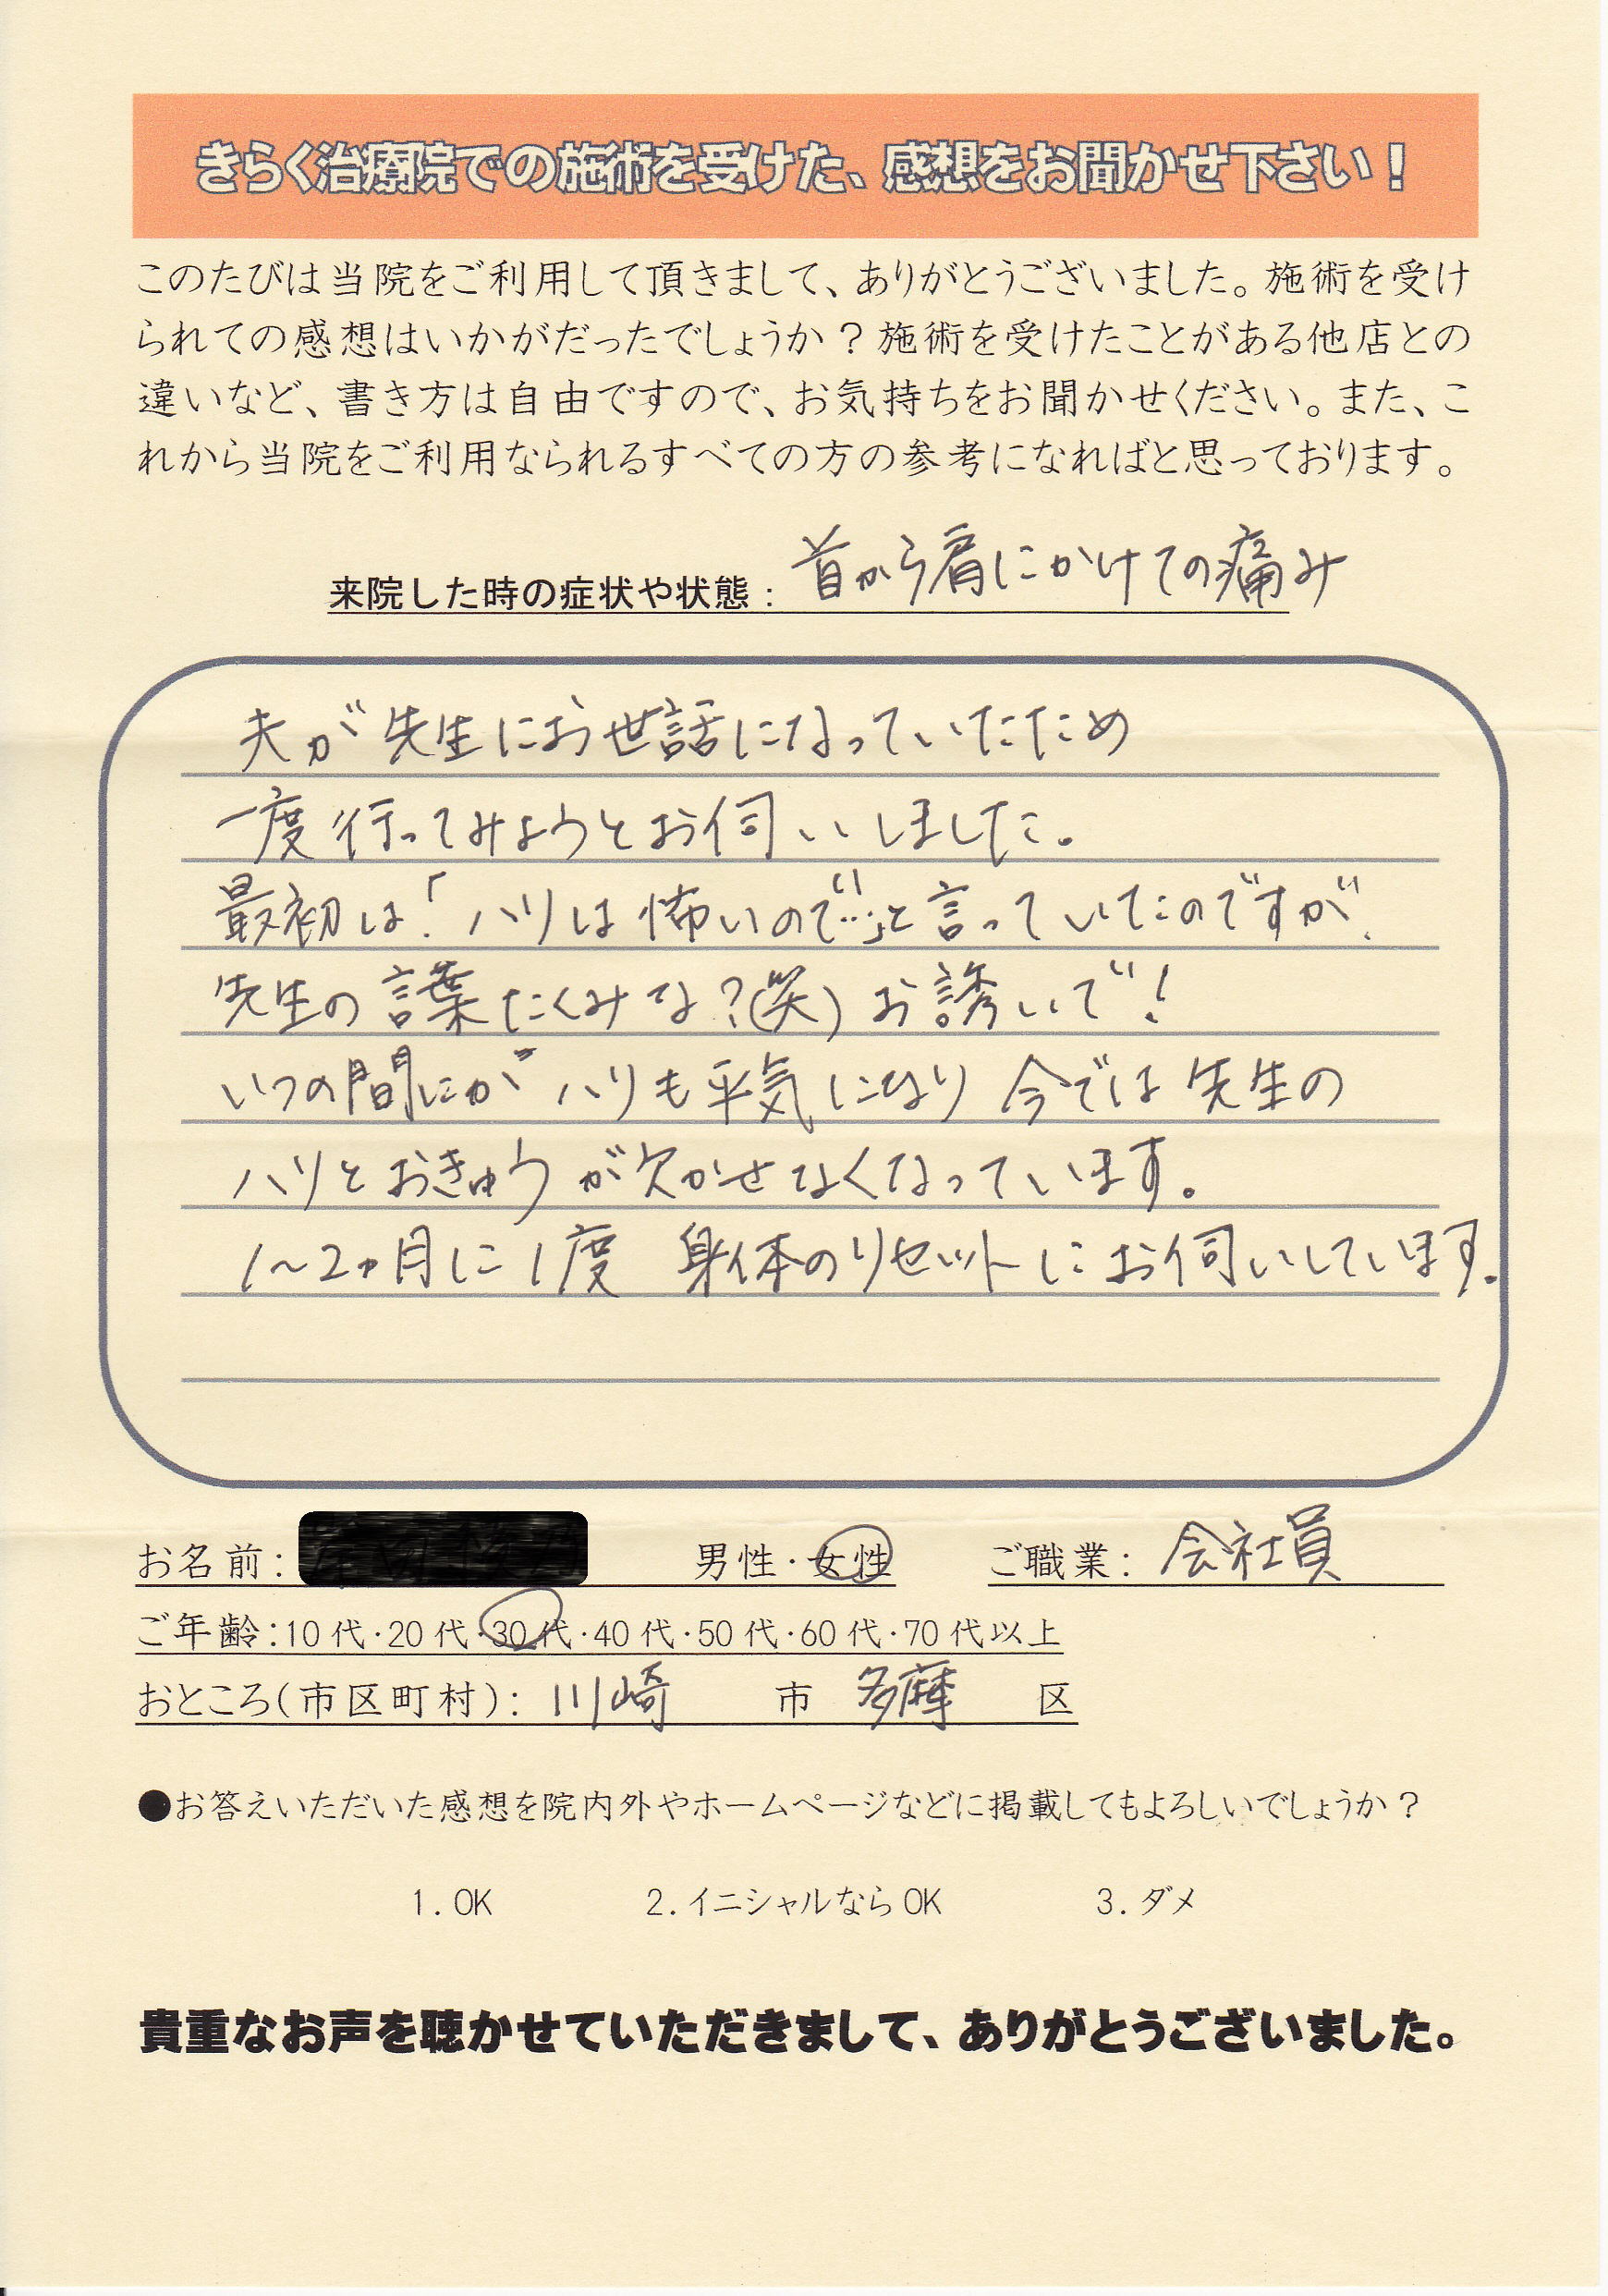 きらく治療院での施術を受けた、感想をお聞かせ下さい！
このたびは当院をご利用して頂きまして、ありがとうございました。施術を受け
られての感想はいかがだったでしょうか？施術を受けたことがある他店との
違いなど、書き方は自由ですので、お気持ちをお聞かせください。また、こ
れから当院をご利用なられるすべての方の参考になればと思っております。
来院した時の症状や状態：首から肩にかけての痛み
夫が先生にお世話になっていたため
一度行ってみようとお伺いしました。
最初は「ハリは怖いので…」と言っていたのですが、
先生の言葉たくみな？(笑)お誘いで！
いつの間にが ハリも平気になり 今では先生の
ハリとおきゅうが欠かせなくなっています。
1～2ヶ月に1度 身体のリセットにお伺いしています。
お名前： 男性・女性 ご職業：会社員
ご年齢：10代・20代・30代・40代・50代・60代・70代以上
おところ(市区町村)：川崎 市 多摩 区
●お答えいただいた感想を院内外やホームページなどに掲載してもよろしいでしょうか？
1. OK 2. イニシャルならOK 3. ダメ
貴重なお声を聴かせていただきまして、ありがとうございました。